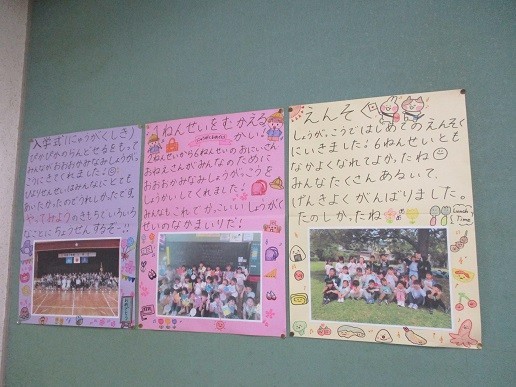 入学式(にゅうがくしき)
ぴかぴかのらんどせるをもって
みんながおおおかみなみしょうが
こうにきてくれました!
となりせんせいはみんなにとても
あいたかったのでうれしかったです。
やってみようのきもちでいろいろ
なことにちょうせんするぞー!!
1ねんせいをむかえる
かい!
2ねんせいから6ねんせいのおにいさん
おねえさんがみんなのために
おおおかみなみしょうがっこうを
しょうかいしてくれました!
みんなもこれでかっこいいしょうがく
せいのなかまいりだ!
えんそく
しょうがっこうではじめてのえんそく
にいきました!6ねんせいとも
なかよくなれてよかったね
みんなたくさんあるいて、
げんきよくがんばりました。
たのしかったね
Lunch
Time